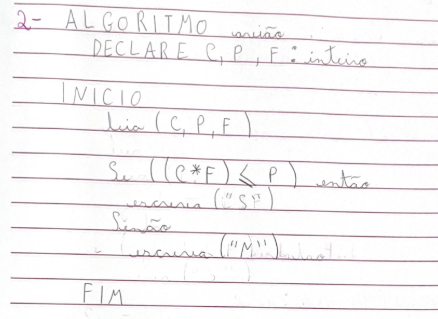 2- ALGORITMO avião
DECLARE C, P, F : inteiro
INICIO
leia (C, P, F)
Se ((C*F) ⩽ P) então
escreva ("S")
Sinão
escreva ("N")
FIM